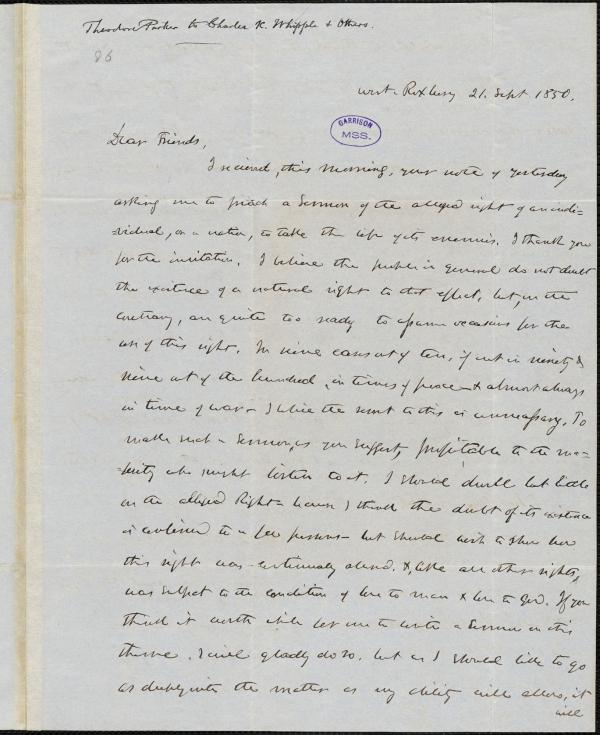 Theodore Parker to Charles K. Whipple & Others.
86
West Roxbury 21. Sept 1850.
GARRISON
MSS.
Dear Friends,
I received, this morning, your note of yesterday
asking me to preach a Sermon of the alleged right of an indi-
vidual, or a nation, to take the life of its enemies. I thank you
for the invitation. I believe the public in general do not doubt
the existence of a natural right to that effect, but, on the
contrary, are quite too ready to occasions for the
use of this right. In nine cases out of ten, if not in ninety &
nine out of the hundred, in times of peace — & almost always
in time of war — I believe the resort to this is unnecessary. To
make such a Sermon, as you suggest, profitable to the ma-
jority who might listen to it, I should dwell but little
on the alleged Right — because I think the doubt of its existence
is confined to a few persons — but should wish to show how
this right was abused, &, like all other rights,
was subject to the condition of love to man & love to God. If you
think it worth while for me to write a Sermon on this
theme, I will gladly do so. but as I should like to go
as deeply into the matter as my ability will allow, it
will